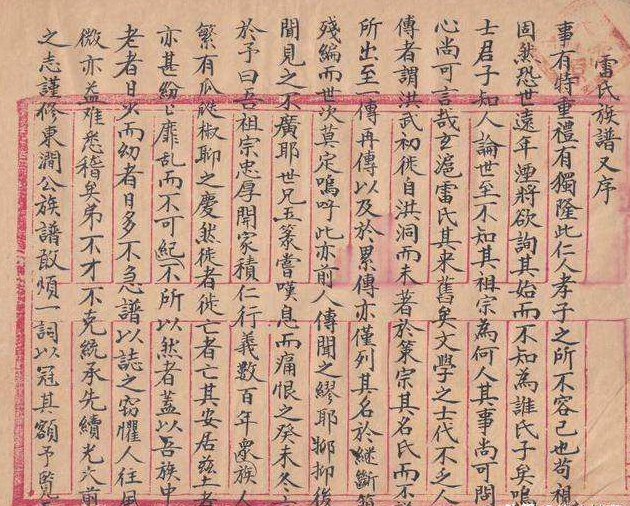 雷氏族譜又序
事有特重禮有獨隆此仁人孝子之所不容已也苟視
固然恐世遠年湮將欲詢其始而不知為誰氏子矣嗚
士君子知人論世至不知其祖宗為何人其事尚可問
心尚可言哉玄滬雷氏其來舊矣文學之士代不乏人
傳者謂洪武初徙自洪洞而未著於策宗其名氏而不
所出至一傳再傳以及於累傳亦僅列其名於繼斷簡
殘編而世次莫定嗚呼此亦前人傳聞之繆耶抑後
聞見之不廣耶世兄五篆嘗嘆息而痛恨之癸未冬
於予曰吾祖宗忠厚開家積仁行義數百年
族人
繁有瓜瓞椒聊之慶然徙者徙亡者亡其安居茲土者
亦甚紛紜靡乱而不可紀不所以然者蓋以吾族中
老者日火而幼者日多不急譜以誌之窃懼人往風
微亦益难悉稽矣弟不才不克統承先續光大前
之志謹修東澗公族譜敢煩一詞以冠其額予覽